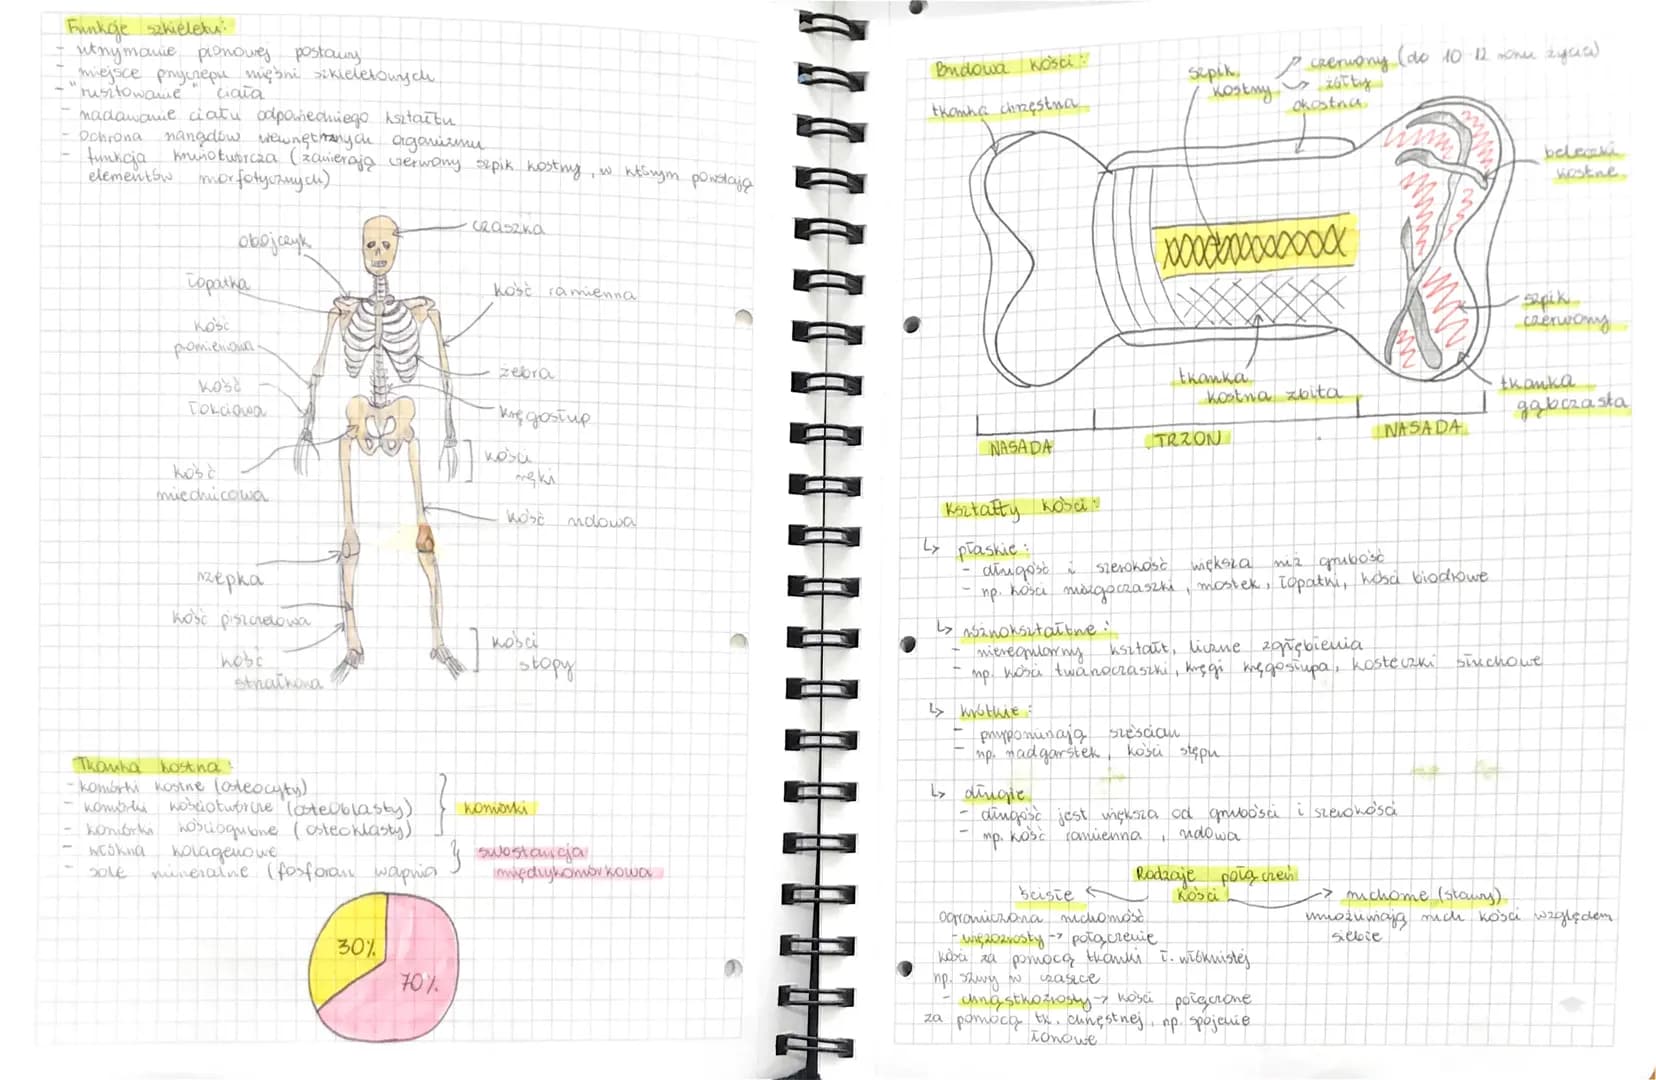 Funkcje szkieletu:
- utrzymanie pionowej postawy
- miejsce przyczepu mięśni szkieletowych
- "rusztowanie" ciała
- nadawanie ciału odpowiedniego kształtu
- ochrona narządów wewnętrznych organizmu
- funkcja krwiotwórcza (zawierają czerwony szpik kostny, w którym powstają
elementów morfotycznych)
czaszka
obojczyk
łopatka
kość ramienna
kość
promieniowa
żebra
kość
łokciowa
kręgosłup
kości
ręki
kość
miednicowa
kość udowa
rzepka
kość piszczelowa
kości
stopy
kość
strzałkowa
Tkanka kostna:
- komórki kostne (osteocyty)
- komórki kościotwórcze (osteoblasty)
- komórki kościogubne (osteoklasty)
komórki
- włókna kolagenowe
- sole mineralne (fosforan wapnia
substancja
międzykomórkowa
30%
70%
Budowa kości:
szpik
kostny
czerwony (do 10-12 roku życia)
żółty
okostna
tkanka chrzęstna
beleczki
kostne
szpik
czerwony
tkanka
kostna zbita
tkanka
gąbczasta
NASADA
TRZON
NASADA
Kształty kości:
↳ płaskie:
- długość i szerokość większa niż grubość
- np. kości mózgoczaszki, mostek, łopatki, kości biodrowe
↳ różnokształtne:
- nieregularny kształt, liczne zgłębienia
- np. kości twarzoczaszki, kręgi kręgosłupa, kosteczki słuchowe
↳ krótkie:
- przypominają sześcian
- np. nadgarstek, kości stępu
↳ długie
- długość jest większa od grubości i szerokości
- np. kość ramienna, udowa
Rodzaje połączeń
kości
ścisłe
ograniczona ruchomość
- więzozrosty -> połączenie
kości za pomocą tkanki ł. włóknistej
np. szwy w czaszce
- chrząstkozrosty -> kości połączone
za pomocą tk. chrzęstnej, np. spojenie
łonowe
ruchome (stawy)
umożliwiają ruch kości względem
siebie